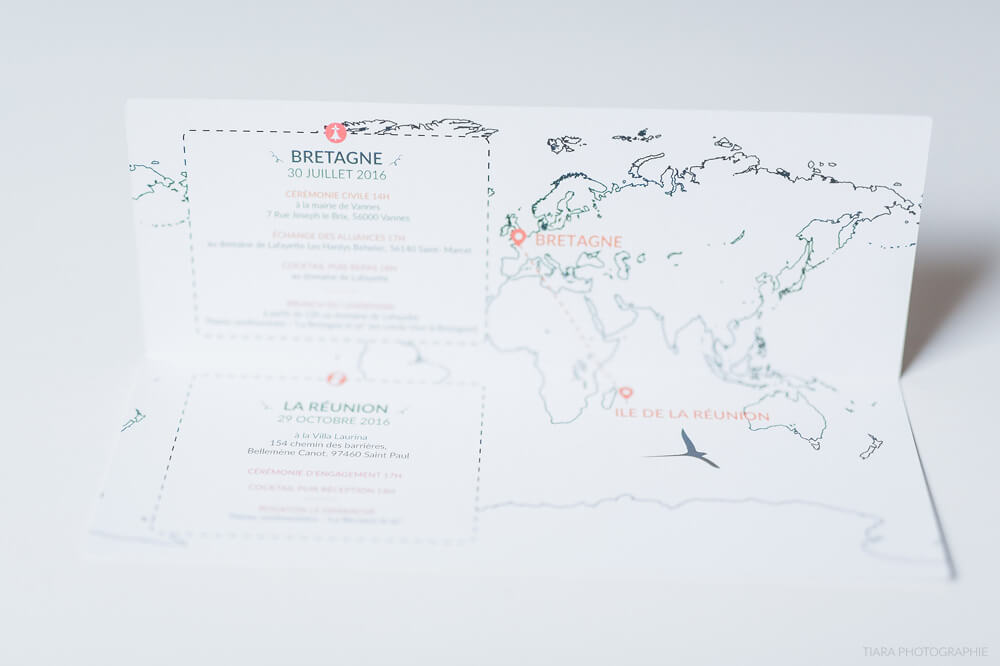 BRETAGNE
30 JUILLET 2016
CÉRÉMONIE CIVILE 14H
à la mairie de Vannes
7 Rue Joseph le Brix, 56000 Vannes
ÉCHANGE DES ALLIANCES 17H
au domaine de Lafayette Les Hardys Béhélec, 56140 Saint- Marcel
COCKTAIL PUIS REPAS 18H
au domaine de Lafayette
BRUNCH DU LENDEMAIN
à partir de 12h au domaine de Lafayette
BRETAGNE
LA RÉUNION
29 OCTOBRE 2016
à la Villa Laurina
154 chemin des barrières,
Bellemène Canot, 97460 Saint Paul
CÉRÉMONIE D'ENGAGEMENT 17H
COCKTAIL PUIS RÉCEPTION 18H
ILE DE LA RÉUNION
TIARA PHOTOGRAPHIE